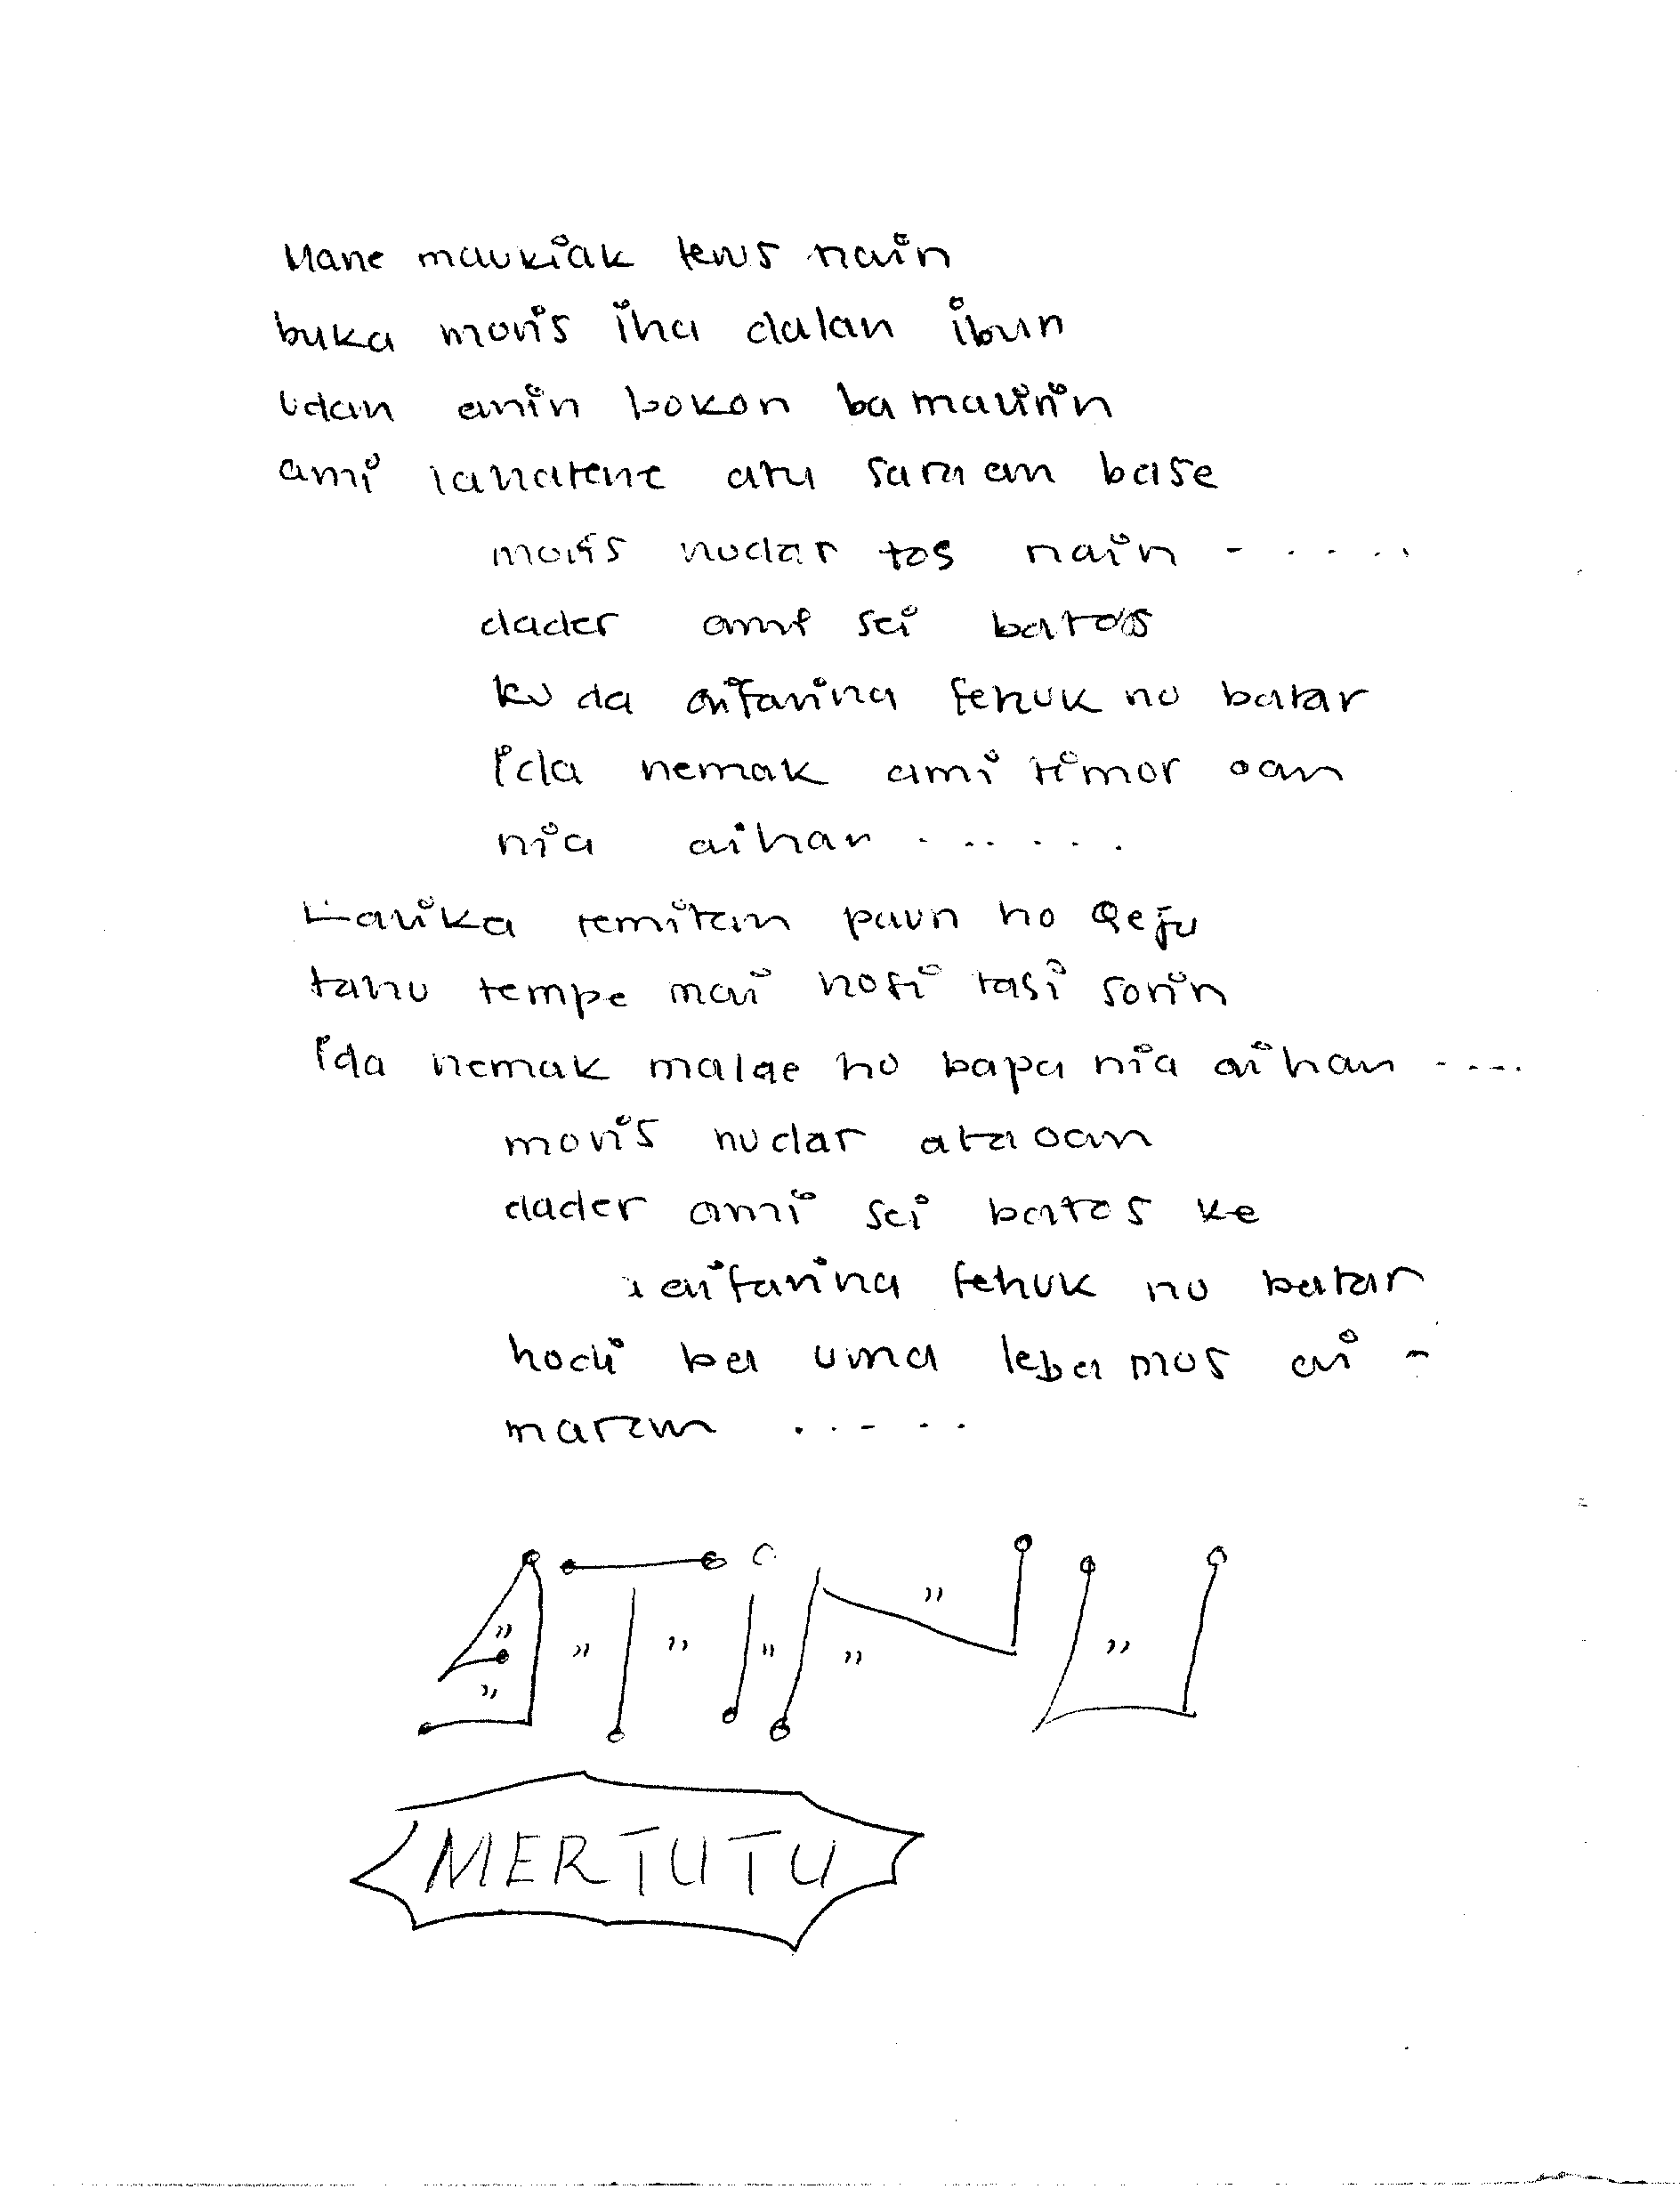 Mane maukiak leus nain
buka moris iha dalan ibun
Udan anin bokon ba malirin
ami lahatene atu sara an base
moris nudar tos nain - . . . . .
dader ami sei batos
ku da aifarina fehuk no batar
ida nemak ami timor oan
nia aihan . . . . . .
Larika remitan paun ho Qeju
tahu tempe mai hosi tasi sorin
ida nemak malae ho bapa nia aihan - - - .
moris nudar ata oan
dader ami sei batos ke
aifarina fehuk no batar
hodi ba uma leba mos ai -
maran . . - . .
ATINU
MERTUTU